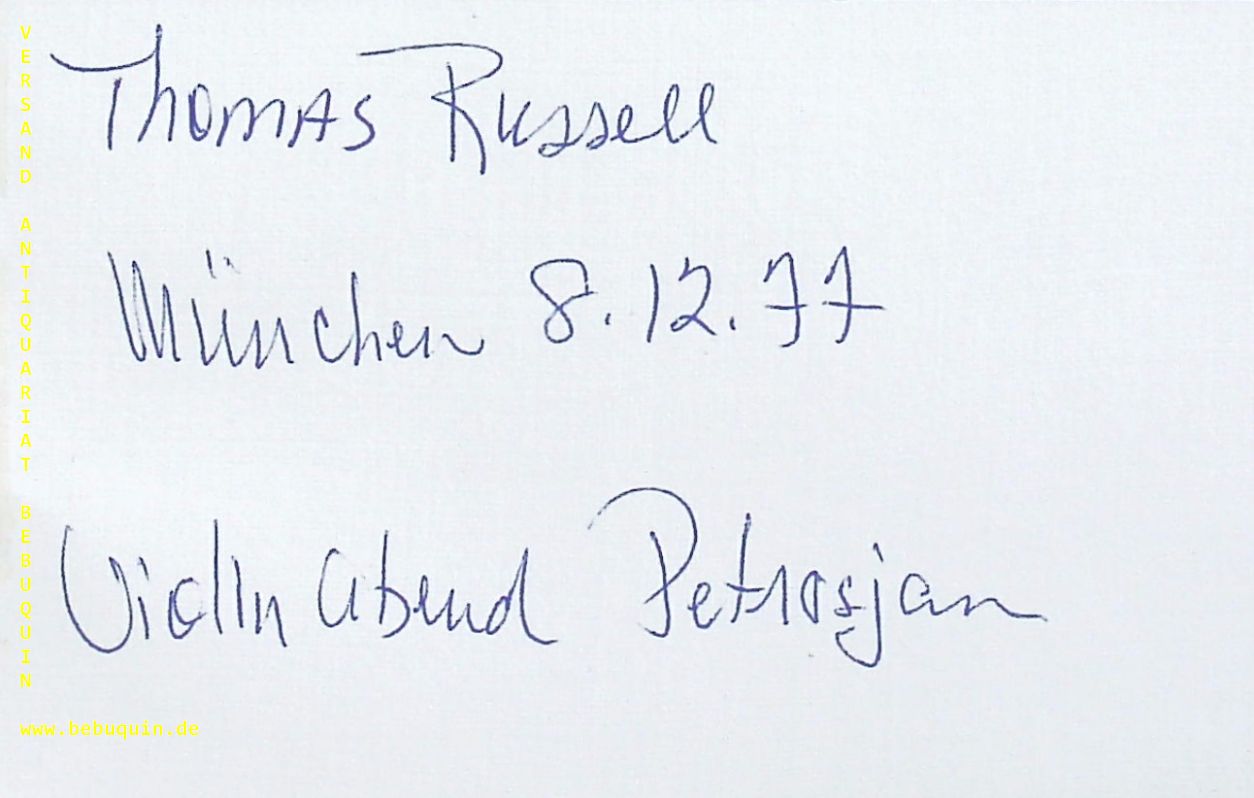 Thomas Russell
München 8.12.77
Violin Abend Petrosjan
VERSAND ANTIQUARIAT BEBUQUIN
www.bebuquin.de